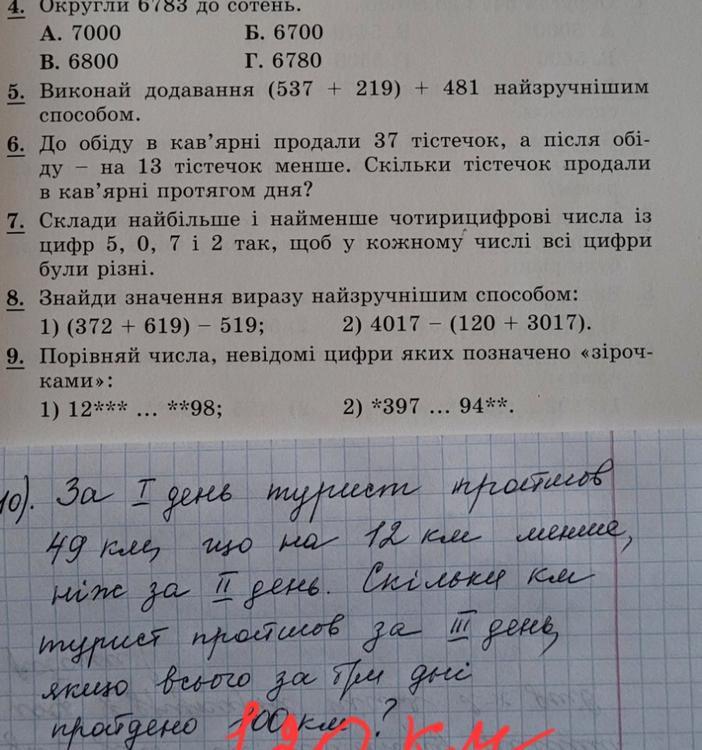 4. Округли 6783 до сотень.
А. 7000 Б. 6700
В. 6800 Г. 6780
5. Виконай додавання (537 + 219) + 481 найзручнішим
способом.
6. До обіду в кав’ярні продали 37 тістечок, а після обі-
ду – на 13 тістечок менше. Скільки тістечок продали
в кав’ярні протягом дня?
7. Склади найбільше і найменше чотирицифрові числа із
цифр 5, 0, 7 і 2 так, щоб у кожному числі всі цифри
були різні.
8. Знайди значення виразу найзручнішим способом:
1) (372 + 619) – 519; 2) 4017 – (120 + 3017).
9. Порівняй числа, невідомі цифри яких позначено «зіроч-
ками»:
1) 12*** ... **98; 2) *397 ... 94**.
10). За I день турист пройшов
49 км, що на 12 км менше,
ніж за II день. Скільки км
турист пройшов за III день,
якщо всього за три дні
пройдено 100 км?